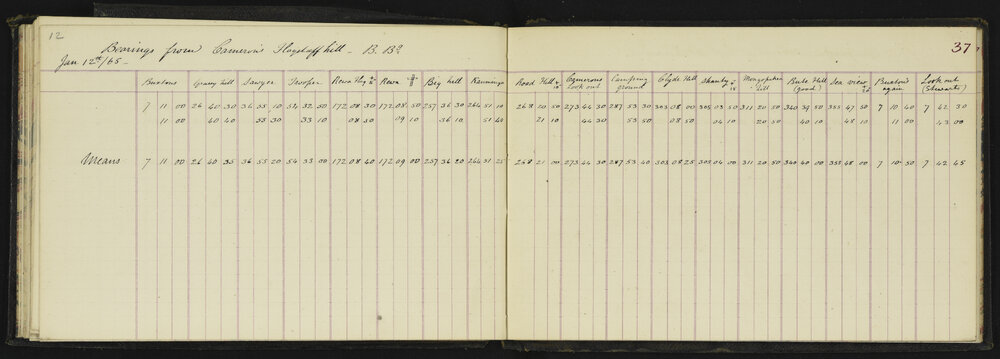 12
37
Bearings from Cameron's Flagstaff hill - B. Bo
Jan 12th /65 -
Buxtons Grassy hill Sawyer Trooper Rewa Rewa Big hill Rannings Road Hill Camerons Look out Camping ground Clyde Hill Shanty Hill Bute Hill (good) Sea view Buxton again Look out (Stewarts)
7 11 00 26 40 30 36 55 10 54 32 50 172 08 30 172 08 50 257 36 30 264 51 10 268 20 50 273 44 30 287 53 30 303 08 00 305 03 50 311 20 50 340 39 50 355 47 50 7 10 40 7 42 30
11 00 40 40 55 30 33 10 08 50 09 10 36 10 51 40 21 10 44 30 53 50 08 50 04 10 20 50 40 10 48 10 11 00 43 00
Means 7 11 00 26 40 35 36 55 20 54 33 00 172 08 40 172 09 00 257 36 20 264 51 25 268 21 00 273 44 30 287 53 40 303 08 25 305 04 00 311 20 50 340 40 00 355 48 00 7 10 50 7 42 45